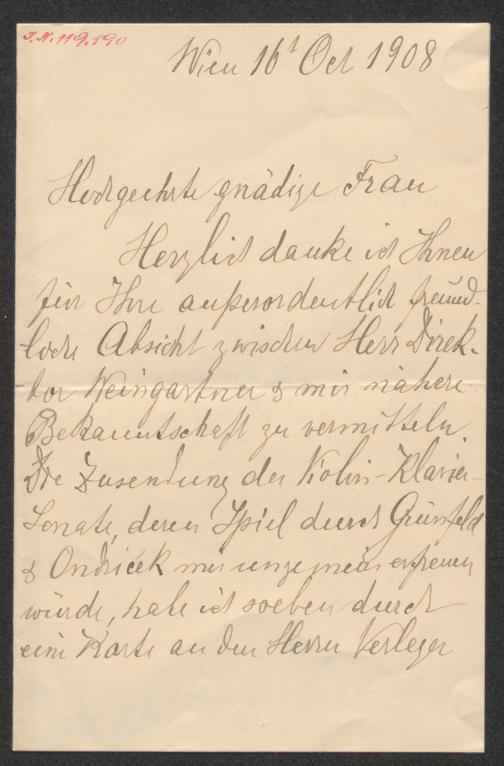 J.N. 119.190
Wien 16t Oct 1908
Hochgeehrte gnädige Frau
Herzlich danke ich Ihnen
für Ihre außerordentlich freund-
liche Absicht zwischen Herr Direk-
tor Weingartner & mir nähere
Bekanntschaft zu vermitteln.
Die Zusendung der Violin-Klavier-
Sonate, deren Spiel durch Grünfeld
& Ondřiček mich ungemein erfreuen
würde, habe ich soeben durch
eine Karte an den Herrn Verleger